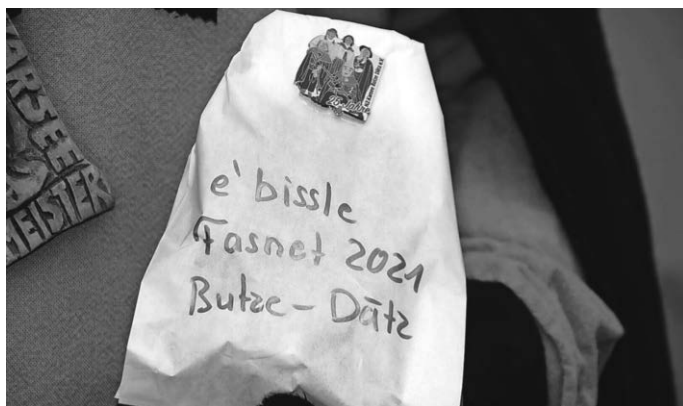 ARSEE
MEISTER
e' bissle
Fasnet 2021
Butze – Dätz